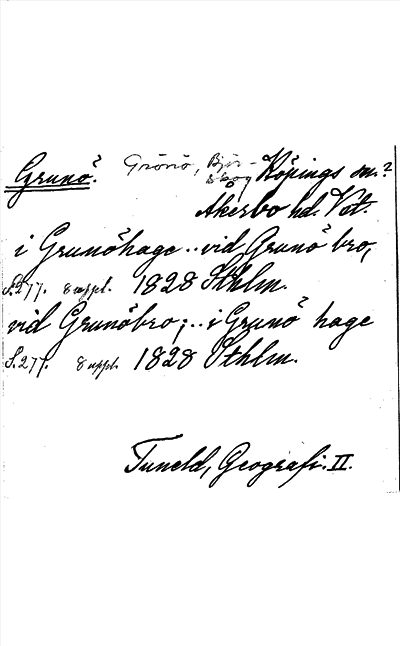 Grunö. Grönö, Björ- Köpings sn.?
skog
Åkerbo hd. Vst.
i Grunöhage .. vid Grunöbro,
S.277. 8 uppl. 1828 Sthlm.
vid Grunöbro; .. i Grunö hage
S.277. 8 uppl. 1828 Sthlm.
Tuneld, Geografi. II.